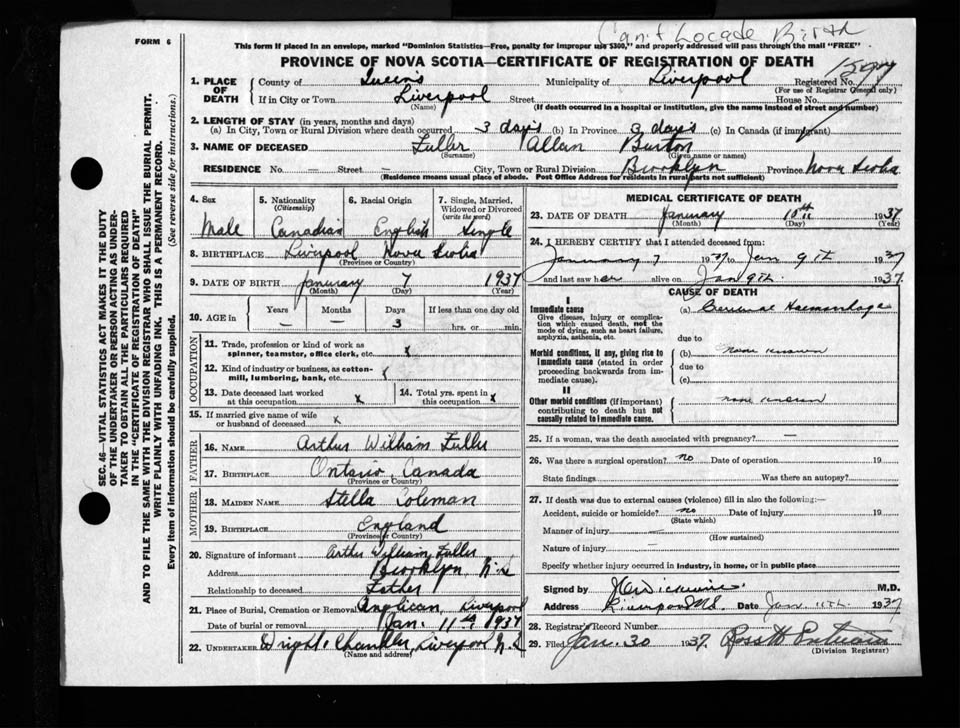 Can't Locate Birth
FORM 6
This form if placed in an envelope, marked "Dominion Statistics—Free, penalty for improper use $300," and properly addressed will pass through the mail "FREE"
PROVINCE OF NOVA SCOTIA—CERTIFICATE OF REGISTRATION OF DEATH
SEC. 46—VITAL STATISTICS ACT MAKES IT THE DUTY
OF THE UNDERTAKER OR PERSON ACTING AS UNDER-
TAKER TO OBTAIN ALL THE PARTICULARS REQUIRED
IN THE "CERTIFICATE OF REGISTRATION OF DEATH"
AND TO FILE THE SAME WITH THE DIVISION REGISTRAR WHO SHALL ISSUE THE BURIAL PERMIT.
WRITE PLAINLY WITH UNFADING INK. THIS IS A PERMANENT RECORD.
Every item of information should be carefully supplied. (See reverse side for instructions.)
1. PLACE OF DEATH
County of Queens Municipality of Liverpool Registered No.
(For use of Registrar General only)
If in City or Town Liverpool Street House No.
(Name) (If death occurred in a hospital or institution, give the name instead of street and number)
2. LENGTH OF STAY (in years, months and days)
(a) In City, Town or Rural Division where death occurred 3 days (b) In Province 3 days (c) In Canada (if immigrant)
3. NAME OF DECEASED Fuller Allan Burton
(Surname) (Given name or names)
RESIDENCE No. — Street — City, Town or Rural Division Brooklyn Province Nova Scotia
(Residence means usual place of abode. Post Office Address for residents in rural parts not sufficient)
4. Sex
Male
5. Nationality
(Citizenship)
Canadian
6. Racial Origin
English
7. Single, Married,
Widowed or Divorced
(write the word)
Single
8. BIRTHPLACE Liverpool Nova Scotia
(Province or Country)
9. DATE OF BIRTH January 7 1937
(Month) (Day) (Year)
10. AGE in Years Months Days If less than one day old
— — 3 hrs. or min.
OCCUPATION
11. Trade, profession or kind of work as
spinner, teamster, office clerk, etc. x
12. Kind of industry or business, as cotton-
mill, lumbering, bank, etc. x
13. Date deceased last worked
at this occupation x
14. Total yrs. spent in
this occupation x
15. If married give name of wife
or husband of deceased x
FATHER
16. NAME Arthur William Fuller
17. BIRTHPLACE Ontario Canada
(Province or Country)
MOTHER
18. MAIDEN NAME Stella Coleman
19. BIRTHPLACE England
(Province or Country)
20. Signature of informant Arthur William Fuller
Address Brooklyn, N.S
Relationship to deceased Father
21. Place of Burial, Cremation or Removal Anglican, Liverpool
Date of burial or removal Jan. 11th 1937
22. UNDERTAKER Wright & Chandler, Liverpool N.S
(Name and address)
MEDICAL CERTIFICATE OF DEATH
23. DATE OF DEATH January 10th 1937
(Month) (Day) (Year)
24. I HEREBY CERTIFY that I attended deceased from:
January 7 1937 to Jan 9th 1937
and last saw her alive on Jan 9th 1937.
CAUSE OF DEATH
I
Immediate cause
Give disease, injury or complica-
tion which caused death, not the
mode of dying, such as heart failure,
asphyxia, asthenia, etc.
(a) Cerebral Haemorrhage
due to
Morbid conditions, if any, giving rise to
immediate cause (stated in order
proceeding backwards from im-
mediate cause).
(b) none known
due to
(c)
II
Other morbid conditions (if important)
contributing to death but not
causally related to immediate cause.
none known
25. If a woman, was the death associated with pregnancy? —
26. Was there a surgical operation? no Date of operation 19
State findings Was there an autopsy?
27. If death was due to external causes (violence) fill in also the following:—
Accident, suicide or homicide? no Date of injury 19
(State which)
Manner of injury —
(How sustained)
Nature of injury —
Specify whether injury occurred in Industry, in home, or in public place
Signed by M.D.
Address Liverpool N.S. Date Jan 11th 1937
28. Registrar's Record Number
29. Filed Jan. 30 1937.
(Division Registrar)